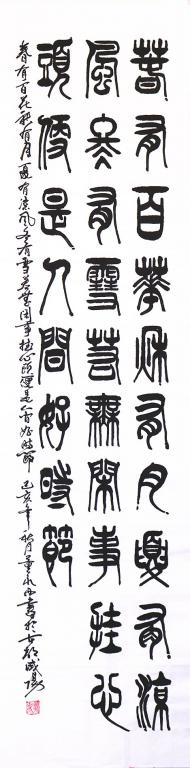 春有百華秋有月夏有涼
風冬有雪若無閒事挂心
頭便是人間好時節
春有百花秋有月夏有涼風冬有雪若無閒事挂心頭便是人間好時節 己亥年秋月書於古都咸陽